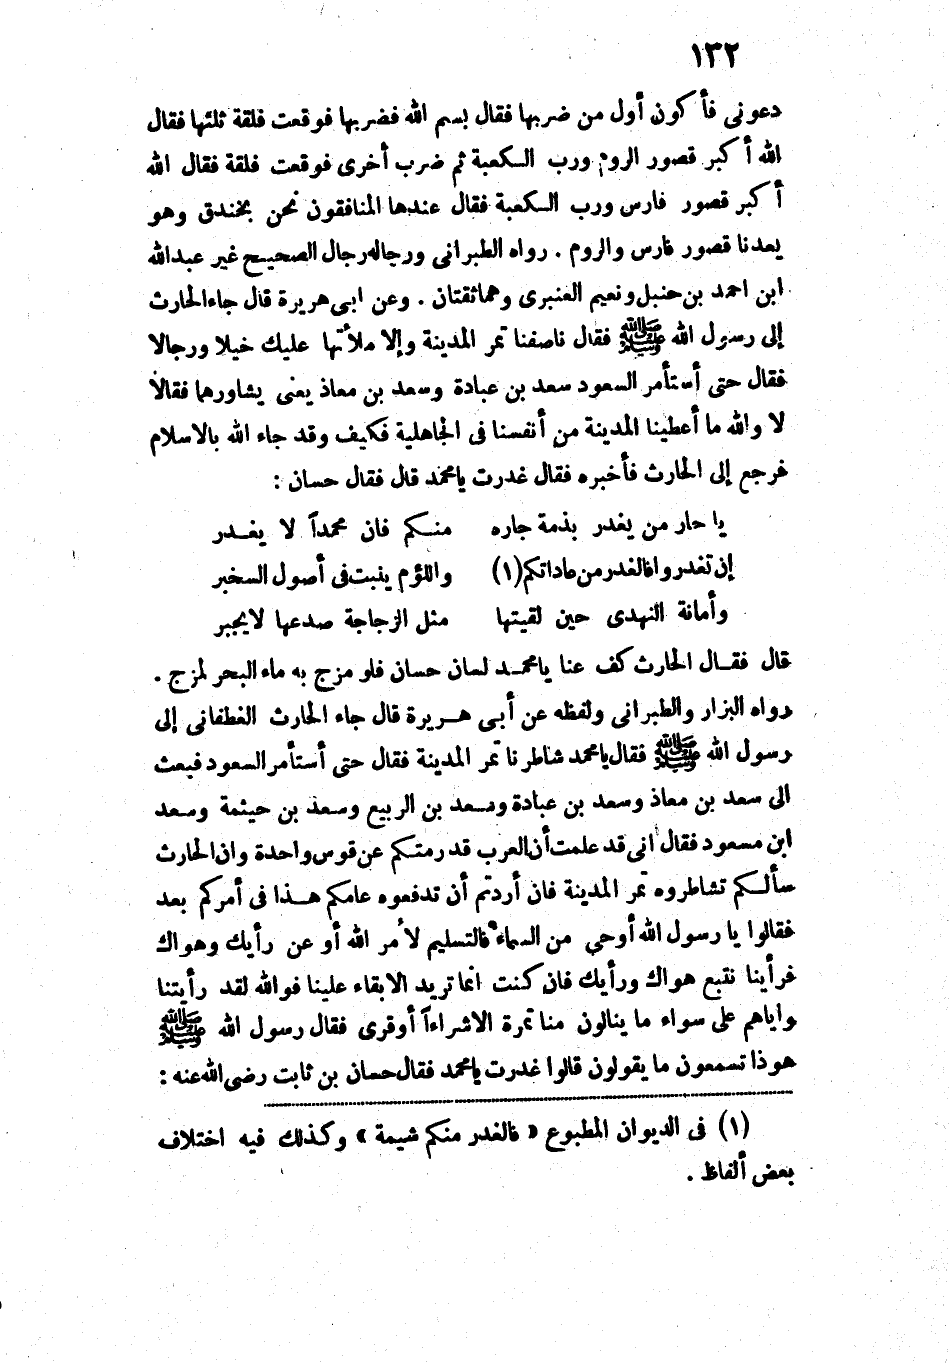 ١٣٢
دعوني فأكون أول من ضربها فقال بسم الله فضربها فوقعت فلقة ثلثها فقال
الله أكبر قصور الروم ورب الكعبة ثم ضرب أخرى فوقعت فلقة فقال الله
أكبر قصور فارس ورب الكعبة فقال عندها المنافقون نحن بخندق وهو
يعدنا قصور فارس والروم . رواه الطبراني ورجاله رجال الصحيح غير عبدالله
ابن احمد بن حنبل ونعيم العنبرى وهما ثقتان . وعن ابى هريرة قال جاء الحارث
إلى رسول الله ﷺ فقال ناصفنا تمر المدينة وإلا ملأتها عليك خيلا ورجالا
فقال حتى أستأمر السعود سعد بن عبادة وسعد بن معاذ يعنى يشاورهما فقالا
لا والله ما أعطينا المدينة من أنفسنا فى الجاهلية فكيف وقد جاء الله بالاسلام
فرجع إلى الحارث فأخبره فقال غدرت يامحمد قال فقال حسان :
يا حار من يغدر بذمة جاره منكم فان محمداً لا يغدر
إن تغدروا فالغدر من عاداتكم (١) واللؤم ينبت فى أصول السخبر
وأمانة النهدى حين لقيتها مثل الزجاجة صدعها لايجبر
قال فقال الحارث كف عنا يامحمد لسان حسان فلو مزج به ماء البحر لمزج .
رواه البزار والطبرانى ولفظه عن أبى هريرة قال جاء الحارث الغطفانى إلى
رسول الله ﷺ فقال يامحمد شاطرنا تمر المدينة فقال حتى أستأمر السعود فبعث
الى سعد بن معاذ وسعد بن عبادة وسعد بن الربيع وسعد بن حيثمة وسعد
ابن مسعود فقال انى قد علمت أن العرب قد رمتكم عن قوس واحدة وان الحارث
سألكم تشاطروه تمر المدينة فان أردتم أن تدفعوه عامكم هذا فى أمركم بعد
فقالوا يا رسول الله أوحي من السماء فالتسليم لأمر الله أو عن رأيك وهواك
فرأينا نتبع هواك ورأيك فان كنت انما تريد الابقاء علينا فوالله لقد رأيتنا
واياهم على سواء ما ينالون منا تمرة الاشراءاً أوقرى فقال رسول الله ﷺ
هوذا تسمعون ما يقولون قالوا غدرت يامحمد فقال حسان بن ثابت رضى الله عنه :
(١) فى الديوان المطبوع « فالغدر منكم شيمة » وكذلك فيه اختلاف
بعض ألفاظ .